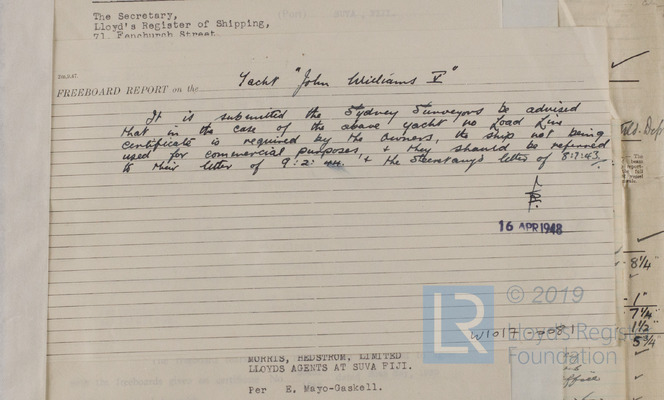 (Fon) SUVA, FIJI.
The Secretary,
Lloyd's Register of Shipping,
71, Fenchurch Street
FREEBOARD REPORT on the Yacht "John Williams V"
It is submitted the Sydney Surveyors be advised
that in the case of the above yacht no Load Line
certificate is required by the owners, the ship not being
used for commercial purposes, & they should be referred
to their letter of 9:2: & the Secretary's letter of 8:7:43.
16 APR 1948
8¼
1"
7¼
1½
5¾
LR
© 2019
Lloyd's Register
Foundation
W1017-0081
MORRIS, HEDSTROM, LIMITED
LLOYDS AGENTS AT SUVA FIJI.
Per E. Mayo-Gaskell.